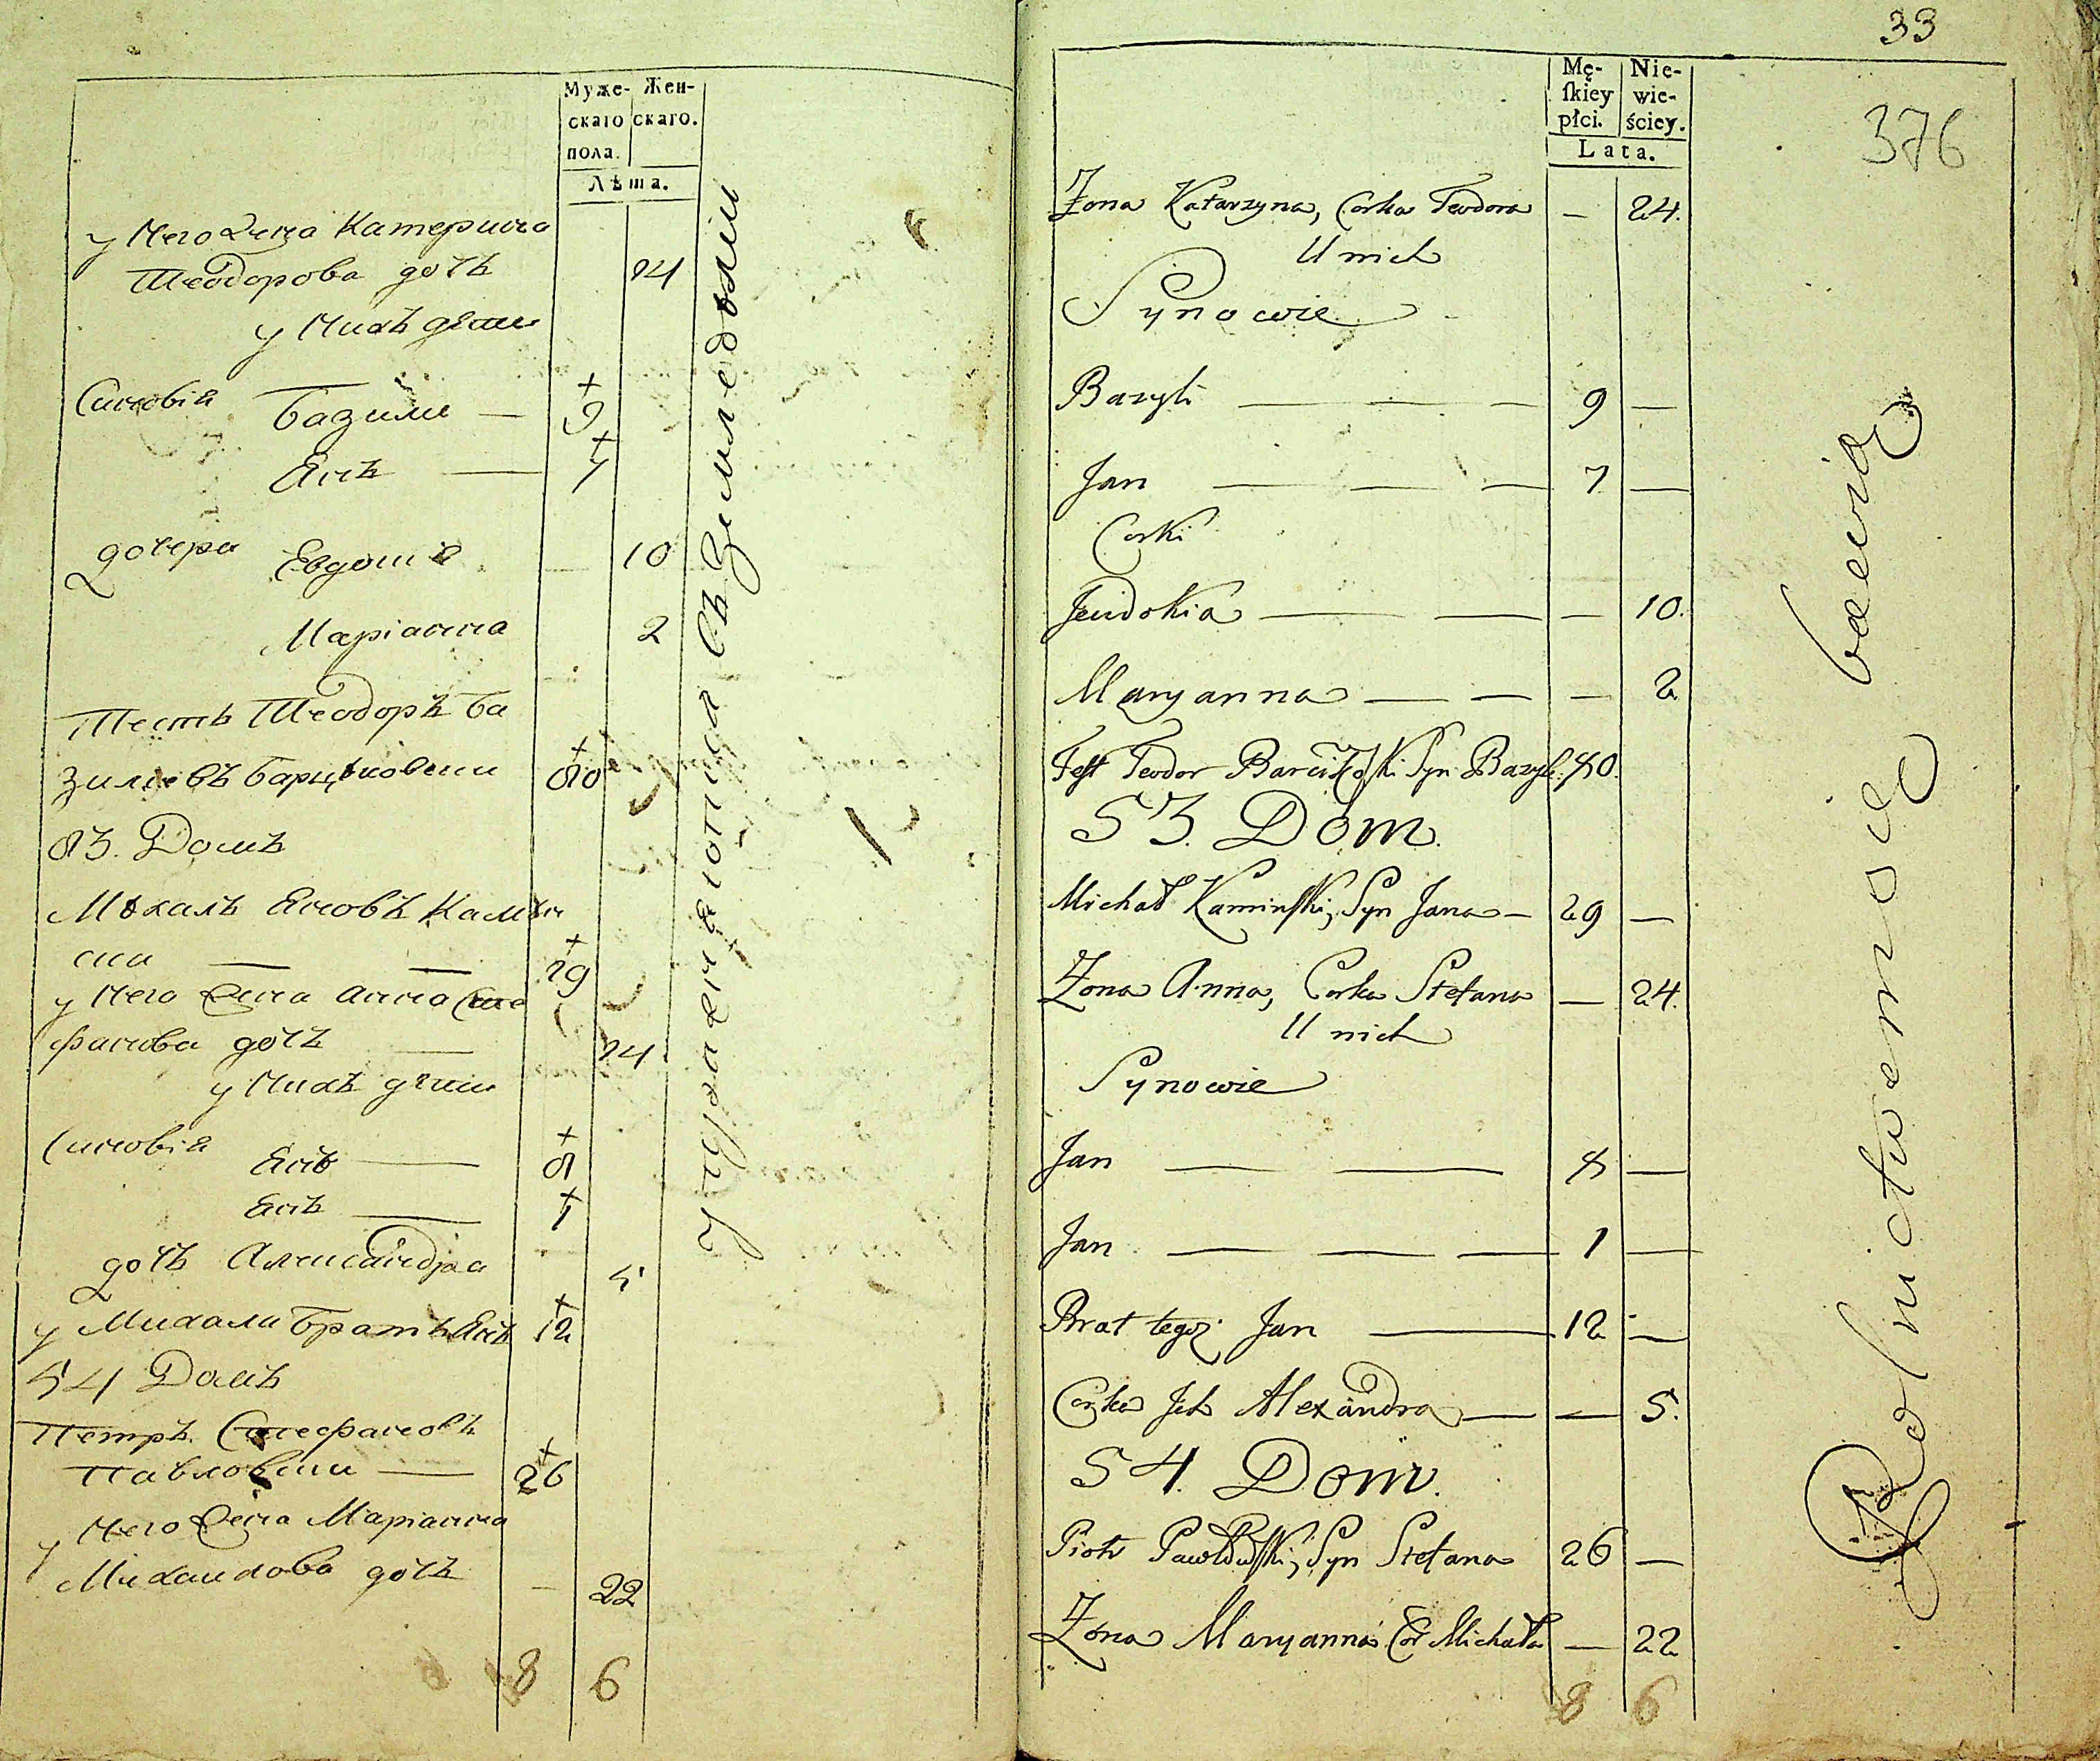 Муже- Жен-
скаго скаго.
пола.
Лѣта.
у Него Жена Катерина
Теодорова дочь 24
у Нихъ дѣти
Синовія Базили — 9
Янъ — 7
дочера Евдокія 10
Маріанна 2
Тесть Теодоръ Ба
зилювъ Барщ 80
83. Домъ
Михалъ Яновъ Камѣн
ски — — 29
у Него Жена Анна Сте
фанова дочь — 24
у Нихъ дѣти
Синовія Янъ — 8
Янъ — 1
дочь Александра 5
у Михали Братъ Янъ 12
54 Домъ
Петръ Стефановъ
Павловски — 26
у Него Жена Маріанна
Михаилова дочь — 22
8 6
Упражняются въ Земледѣліи
33
376
Mę- Nie-
ſkiey wie-
płci. ściey.
Lata.
Zona Katarzyna, Corka Teodora — 24.
U nich
Synowie
Bazyli — — — 9 —
Jan — — — 7 —
Corki
Jeudokia — — — 10.
Maryanna — — — 2
Teſt Teodor Syn Bazyli 80.
53. Dom.
Michał Kaminſki, Syn Jana — 29 —
Zona Anna, Corka Stefana — 24.
U nich
Synowie
Jan — — 8 —
Jan — — — 1 —
Brat tegoż Jan — 12 —
Corka Ich Alexandra — — 5.
54. Dom.
Piotr Pawłowſki, Syn Stefana 26 —
Zona Maryanna Cor Michała — 22
8 6
Rolnictwem się bawią